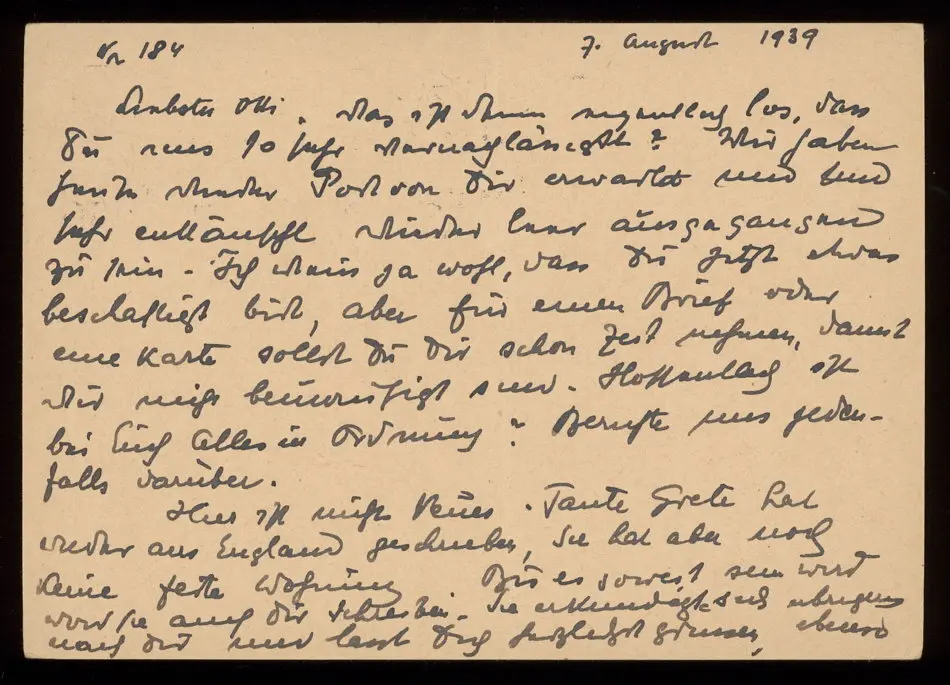 Nr 184 7. August 1939
Liebster Otti, was ist denn eigentlich los, dass
Du uns so sehr vernachlässigst? Wir haben
heute wieder Post von Dir erwartet und sind
sehr enttäuscht wieder leer ausgegangen
zu sein. Ich weiss ja wohl, dass Du jetzt etwas
beschäftigt bist, aber für einen Brief oder
eine Karte sollst Du Dir schon Zeit nehmen, damit
wir nicht beunruhigt sind. Hoffentlich ist
bei Euch Alles in Ordnung? Berichte uns jeden-
falls darüber.
Hier ist nichts Neues. Tante Grete hat
wieder aus England geschrieben, sie hat aber noch
keine feste Wohnung. Bis es soweit sein wird
wird sie auch Dir schreiben. Sie erkundigt sich übrigens
nach Dir und lässt Dich herzlichst grüssen, ebenso